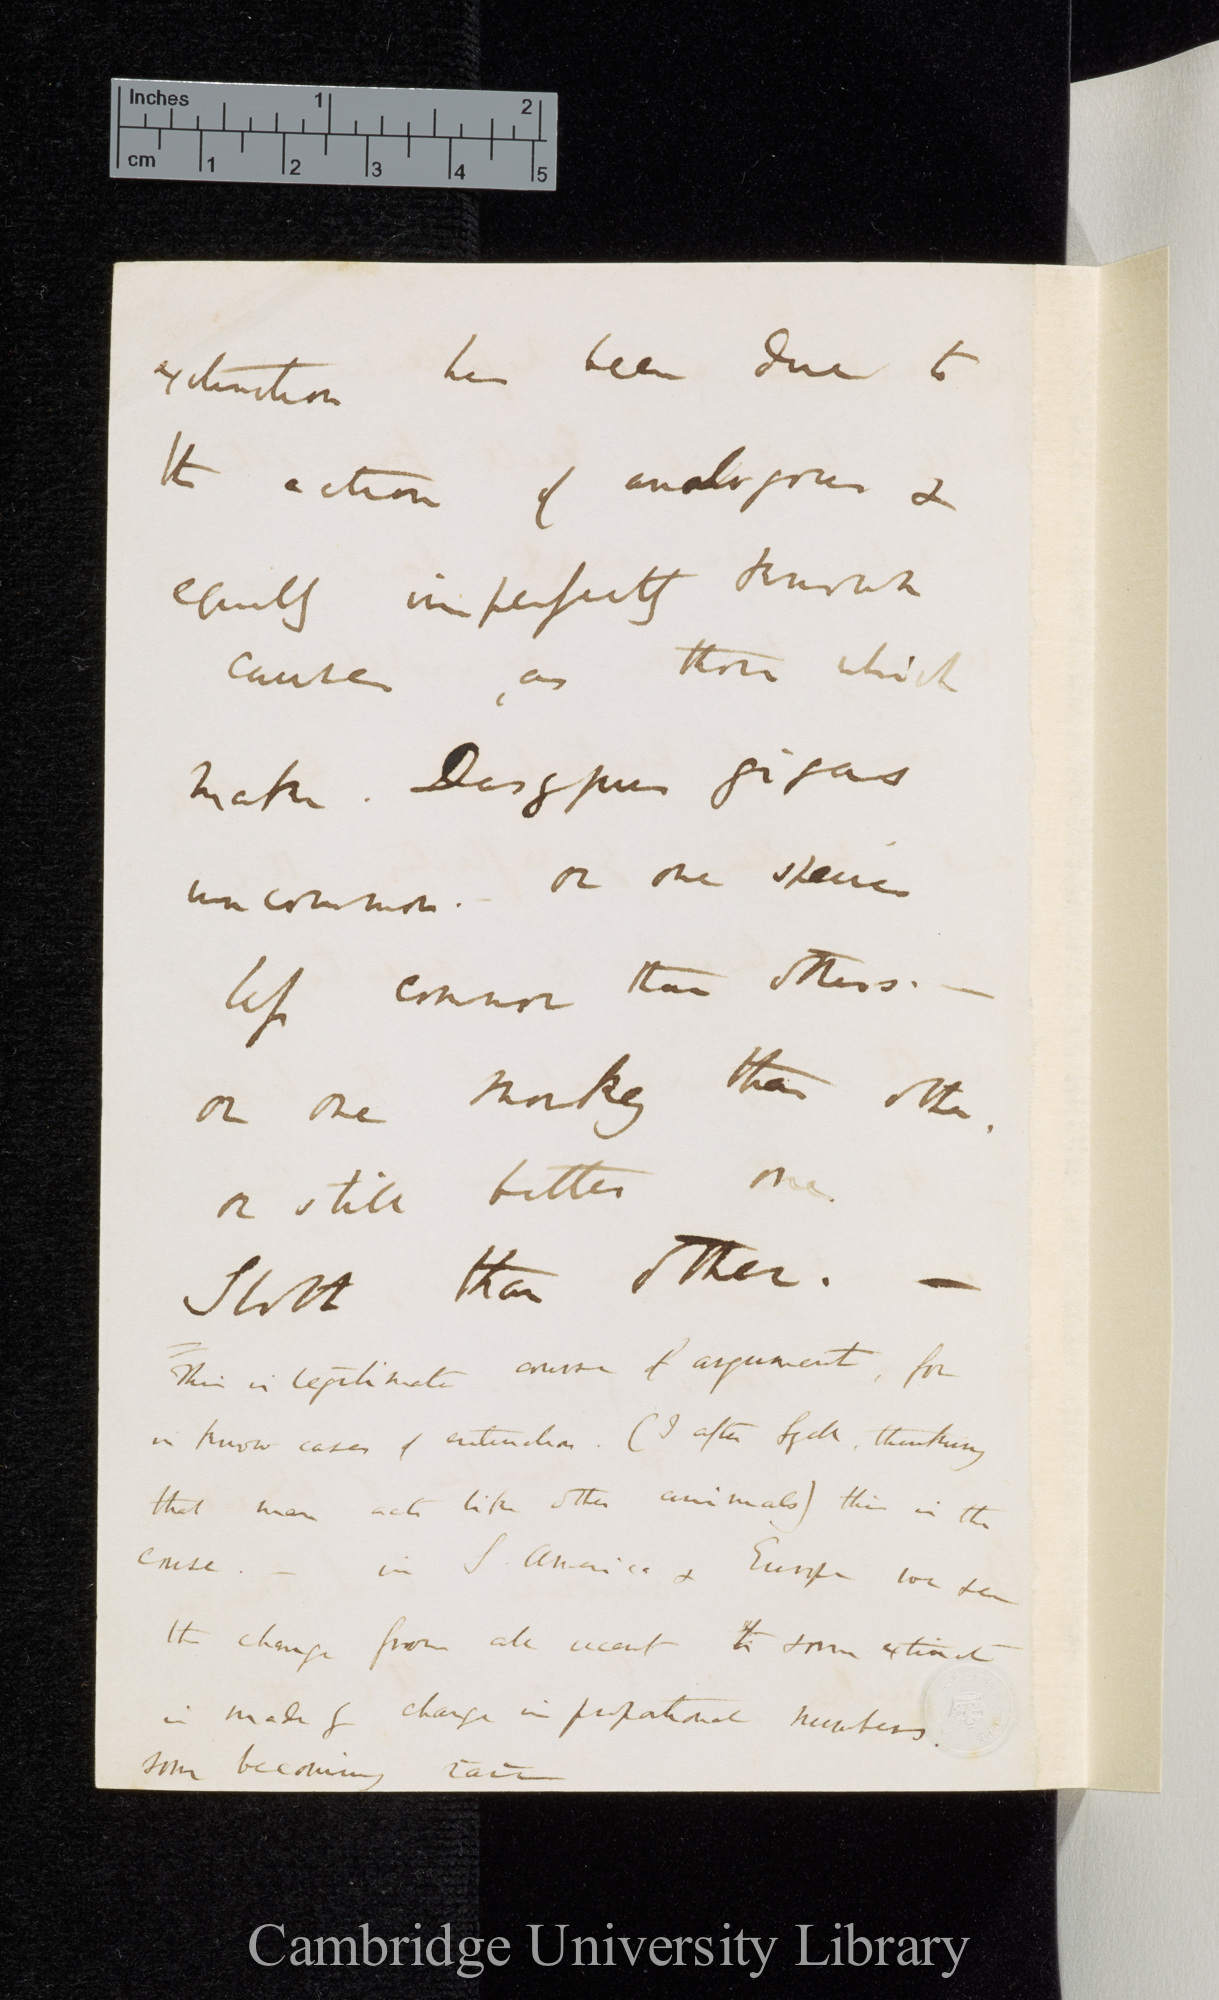 Inches 1 2
cm 1 2 3 4 5
extinction has been due to
the action of analogous &
equally imperfectly known
causes, as those which
make. Dasypus gigas
uncommon. — or one species
less common than others. —
or one monkey than other,
or still better one
Sloth than other. —
This is legitimate course of argument, for
in know cases of extinction. (I after Lyell, thinking
that man acts like other animals) this is the
course. — in S. America & Europe we see
the change from all recent to some extinct
is made by change in proportional numbers.
some becoming rarer
Cambridge University Library